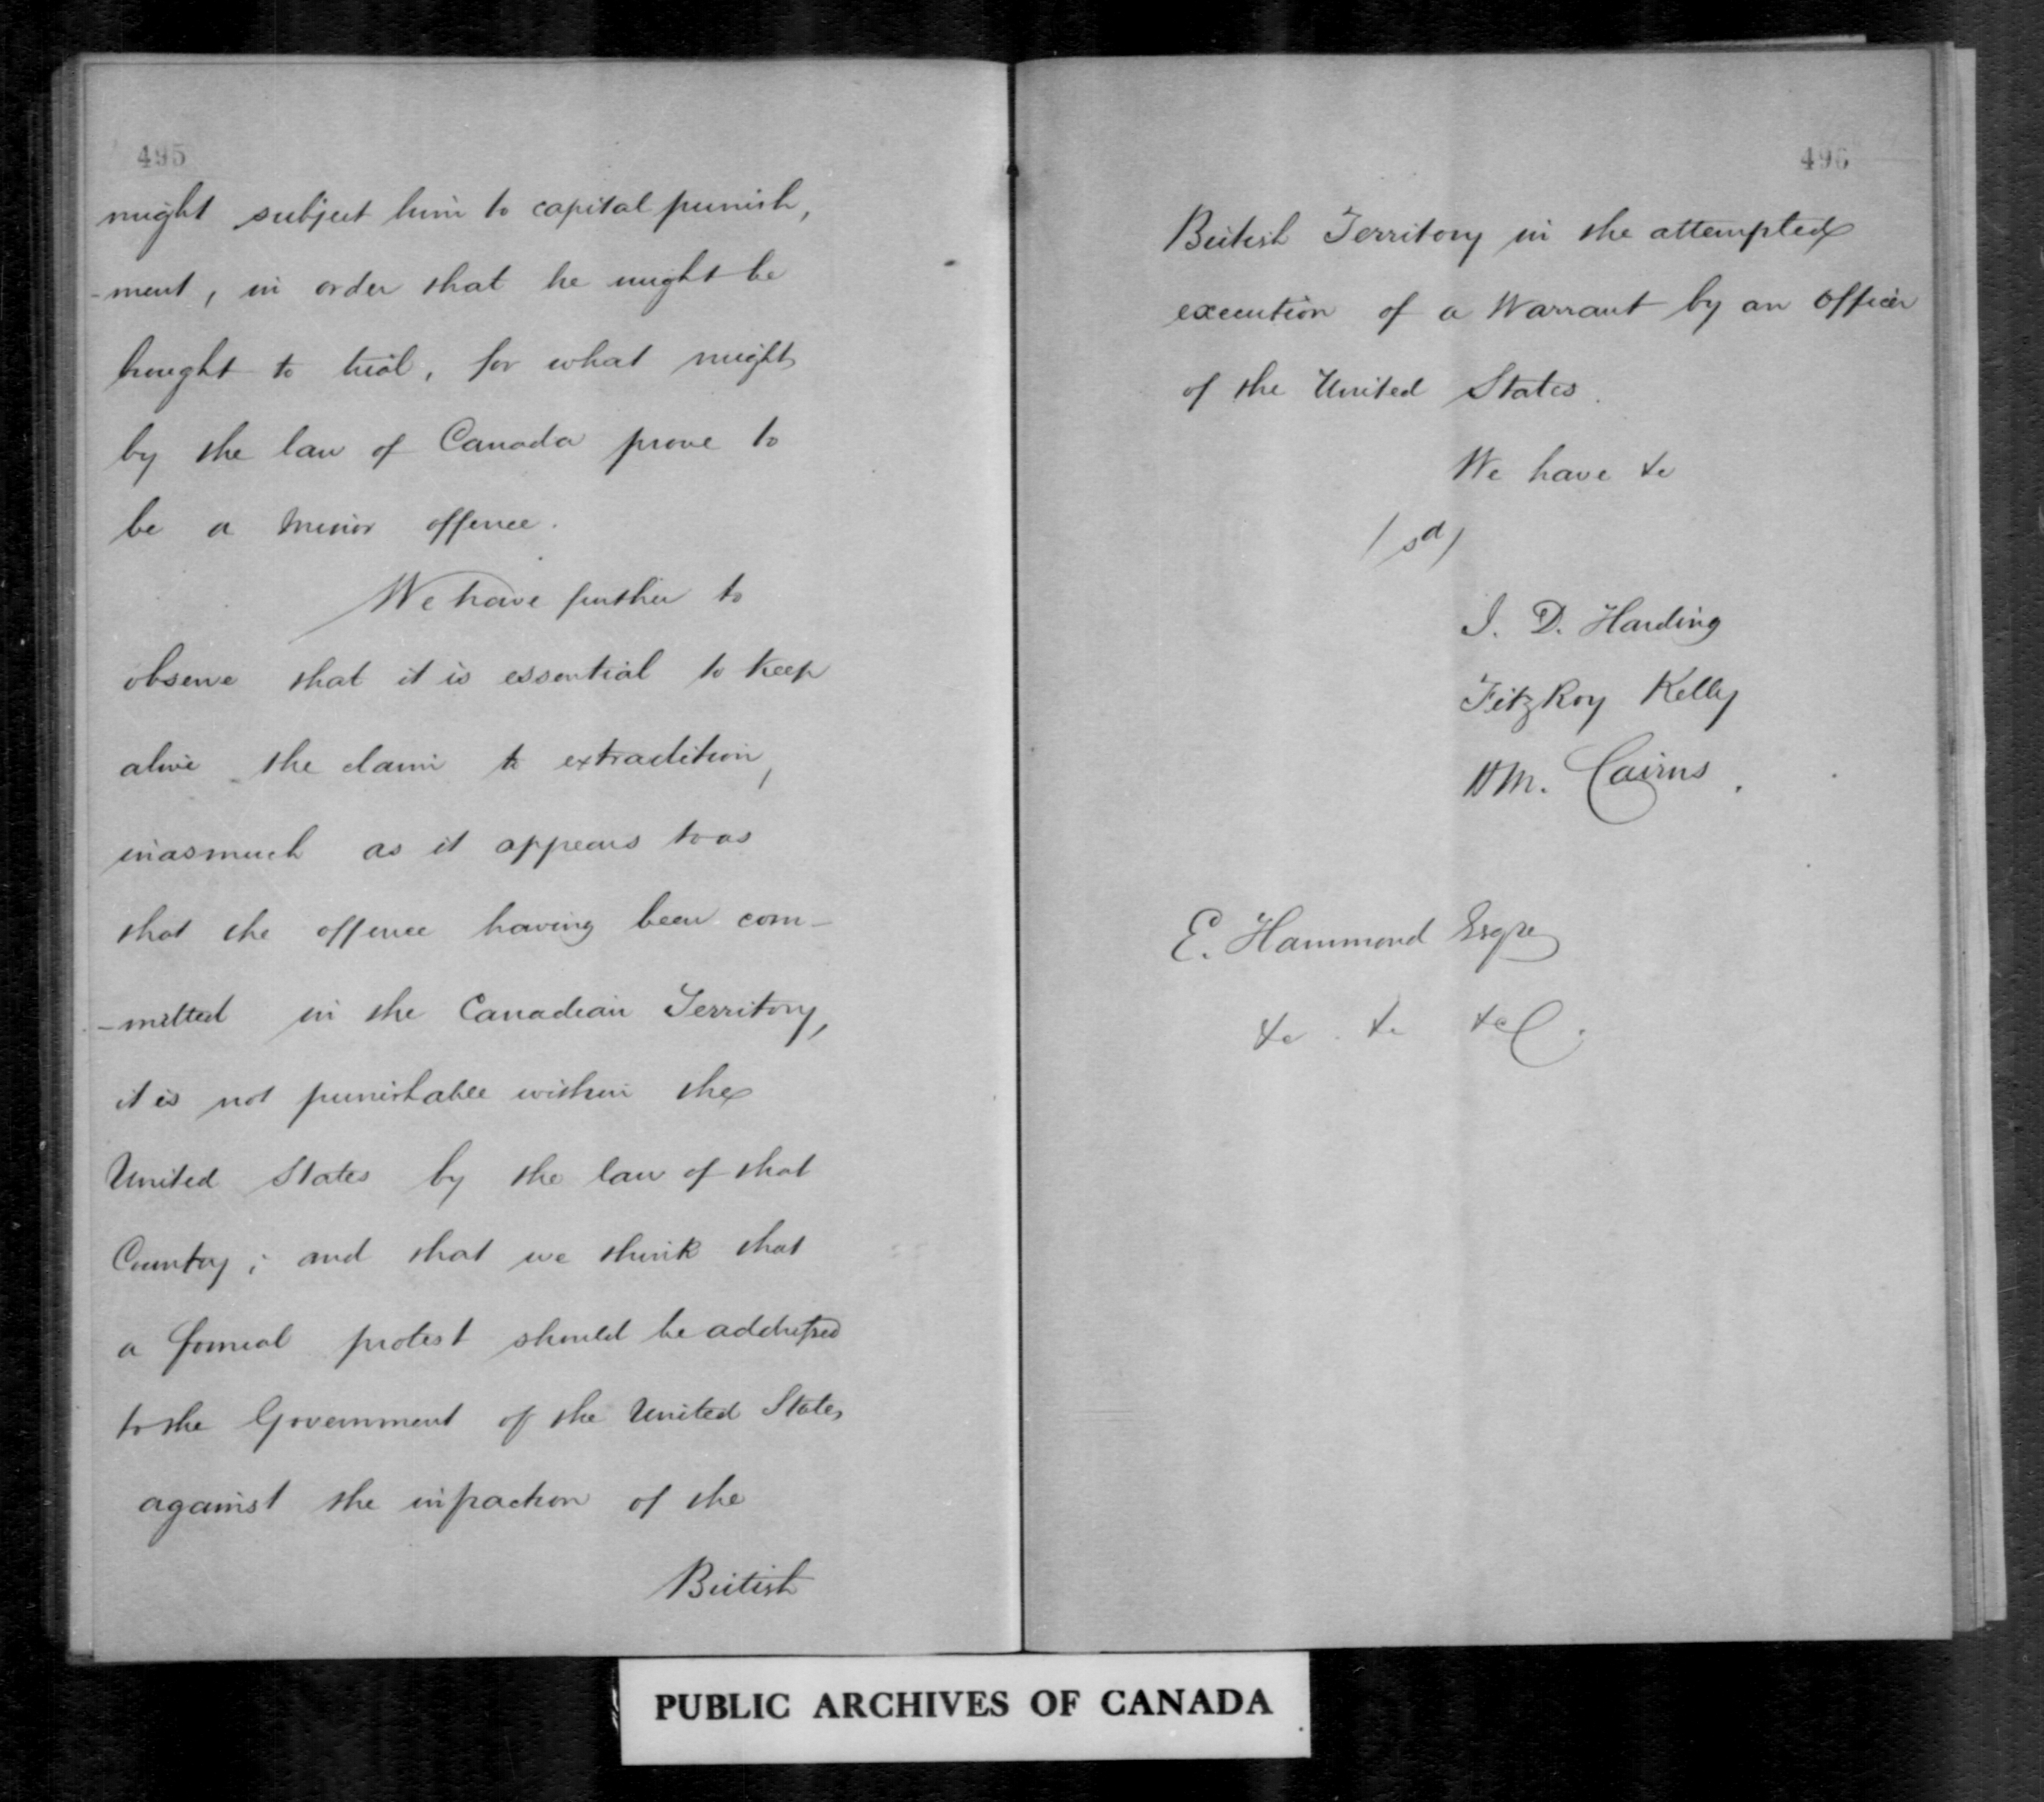 495
might subject him to capital punish,
-ment, in order that he might be
brought to trial, for what might
by the law of Canada prove to
be a minor offence.
We have further to
observe that it is essential to keep
alive the claim to extradition,
inasmuch as it appears to us
that the offence having been com-
-mitted in the Canadian Territory,
it is not punishable within the
United States by the law of that
Country; and that we think that
a formal protest should be addressed
to the Government of the United States
against the infraction of the
British
496
British Territory in the attempted
execution of a Warrant by an Officer
of the United States.
We have &c
/sd/
J. D. Harding
FitzRoy Kelly
H M. Cairns.
E. Hammond Esqre
&c. &c &c.
PUBLIC ARCHIVES OF CANADA